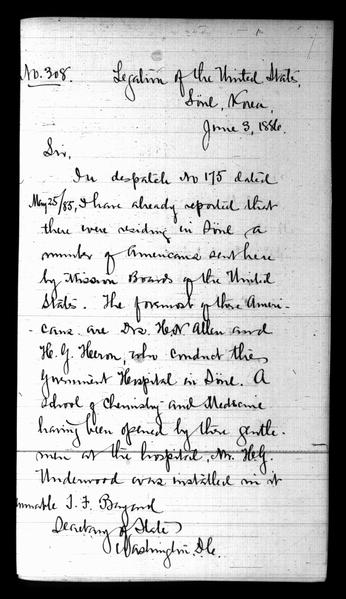 No. 308.
Legation of the United States,
Söul, Korea,
June 3, 1886.
Sir,
In despatch No 175 dated
May 25/85, I have already reported that
there were residing in Söul a
number of Americans sent here
by Mission Boards of the United
States. The foremost of these Ameri-
-cans are Drs. H. N. Allen and
H. G. Heron, who conduct the
Government Hospital in Söul. A
School of Chemistry and Medicine
having been opened by these gentle-
men at the hospital, Mr. H. G.
Underwood was installed in it
onorable T. F. Bayard
Secretary of State
Washington D.C.